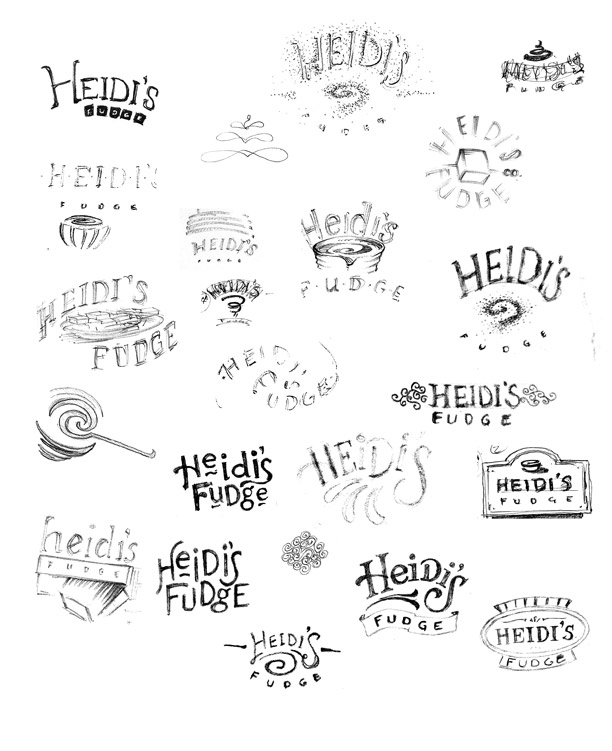 HEIDI'S
FUDGE
HEIDI'S
FUDGE
FUDGE
HEIDI'S
FUDGE
CO.
HEIDI'S
FUDGE
HEIDI'S
Heidi's
F·U·D·G·E
HEIDI'S
FUDGE
HEIDI'S
FUDGE
HEIDI'S
FUDGE
HEIDI'S
FUDGE
HEIDI'S
FUDGE
Heidi's
Fudge
HEiDi'S
HEIDI'S
FUDGE
heidi's
FUDGE
HEiDi'S
FUDgE
HeiDi's
FUDGE
HEIDI'S
FUDGE
HEIDI'S
FUDGE